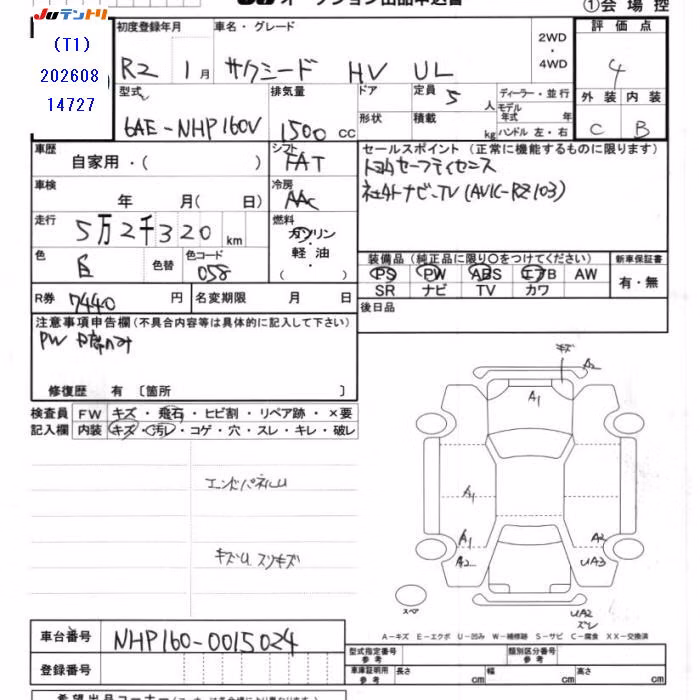 JUテントリ
(T1)
202608
14727
オークション出品申込書
①会場控
初度登録年月
R2 1月
車名・グレード
サクシード HV UL
2WD
・
4WD
評価点
4
型式
6AE-NHP160V
排気量
1500 cc
ドア
形状
定員 5 人
積載 kg
ディーラー・並行
モデル年式 年
ハンドル 左・右
外装 内装
C B
車歴
自家用・( )
シフト
FAT
セールスポイント(正常に機能するものに限ります)
トヨタセーフティセンス
社外ナビ、TV(AVIC-RZ103)
車検
年 月( 日)
冷房
AAC
走行
5万2千320 km
燃料
ガソリン
・
軽油
( )
色
白
色替
色コード
058
装備品(純正品に限り○をつけてください)
新車保証書
PS PW ABS エアB AW
SR ナビ TV カワ
有・無
R券 7440 円
名変期限 月 日
後日品
注意事項申告欄(不具合内容等は具体的に記入して下さい)
PW
修復歴 有 〔箇所 〕
検査員
記入欄
FW キズ・飛石・ヒビ割・リペア跡・×要
内装 キズ・汚レ・コゲ・穴・スレ・キレ・破レ
エンドパネルU
キズU スソキズ
キズ
A2
A1
A1
A1
A2
A2
UA3
スペア
UA2
ズレ
A-キズ E-エクボ U-凹み W-補修跡 S-サビ C-腐食 XX-交換済
車台番号 NHP160-0015024
登録番号
型式指定番号
参考
類別区分番号
参考
車庫証明用
参考
長さ cm 幅 cm 高さ cm
希望出品コーナー